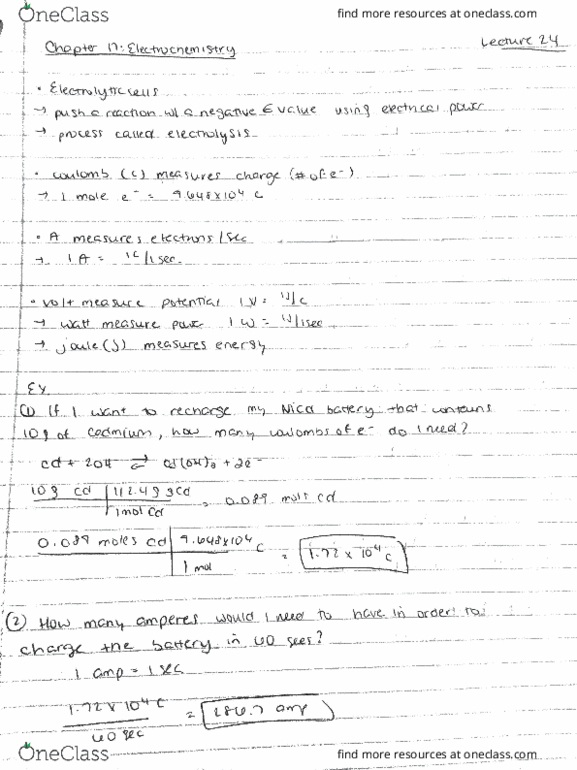 OneClass
find more resources at oneclass.com
Chapter 17: Electrochemistry
Lecture 24
• Electrolytic cells
→ push a reaction w/ a negative E value using electrical power
→ process called electrolysis
• coulomb (c) measures charge (# of e⁻)
→ 1 mole e⁻ = 9.648x10⁴ C
• A measures electrons/sec
→ 1 A = 1C/1sec.
• volt measure potential 1 V = 1J/C
→ watt measure power 1 W = 1J/1sec
→ joule (J) measures energy
Ex
(1) If I want to recharge my NiCd battery that contains
10g of cadmium, how many coulombs of e⁻ do I need?
Cd + 2OH ⇌ Cd(OH)₂ + 2e⁻
10g Cd | 112.41g Cd = 0.089 mols Cd
1 mol Cd
0.089 moles Cd | 9.648x10⁴ C = 1.72 x 10⁴ C
1 mol
(2) How many amperes would I need to have in order to
charge the battery in 60 secs?
1 amp = 1 sec
1.72 x 10⁴ C = 286.7 amp
60 sec
OneClass
find more resources at oneclass.com